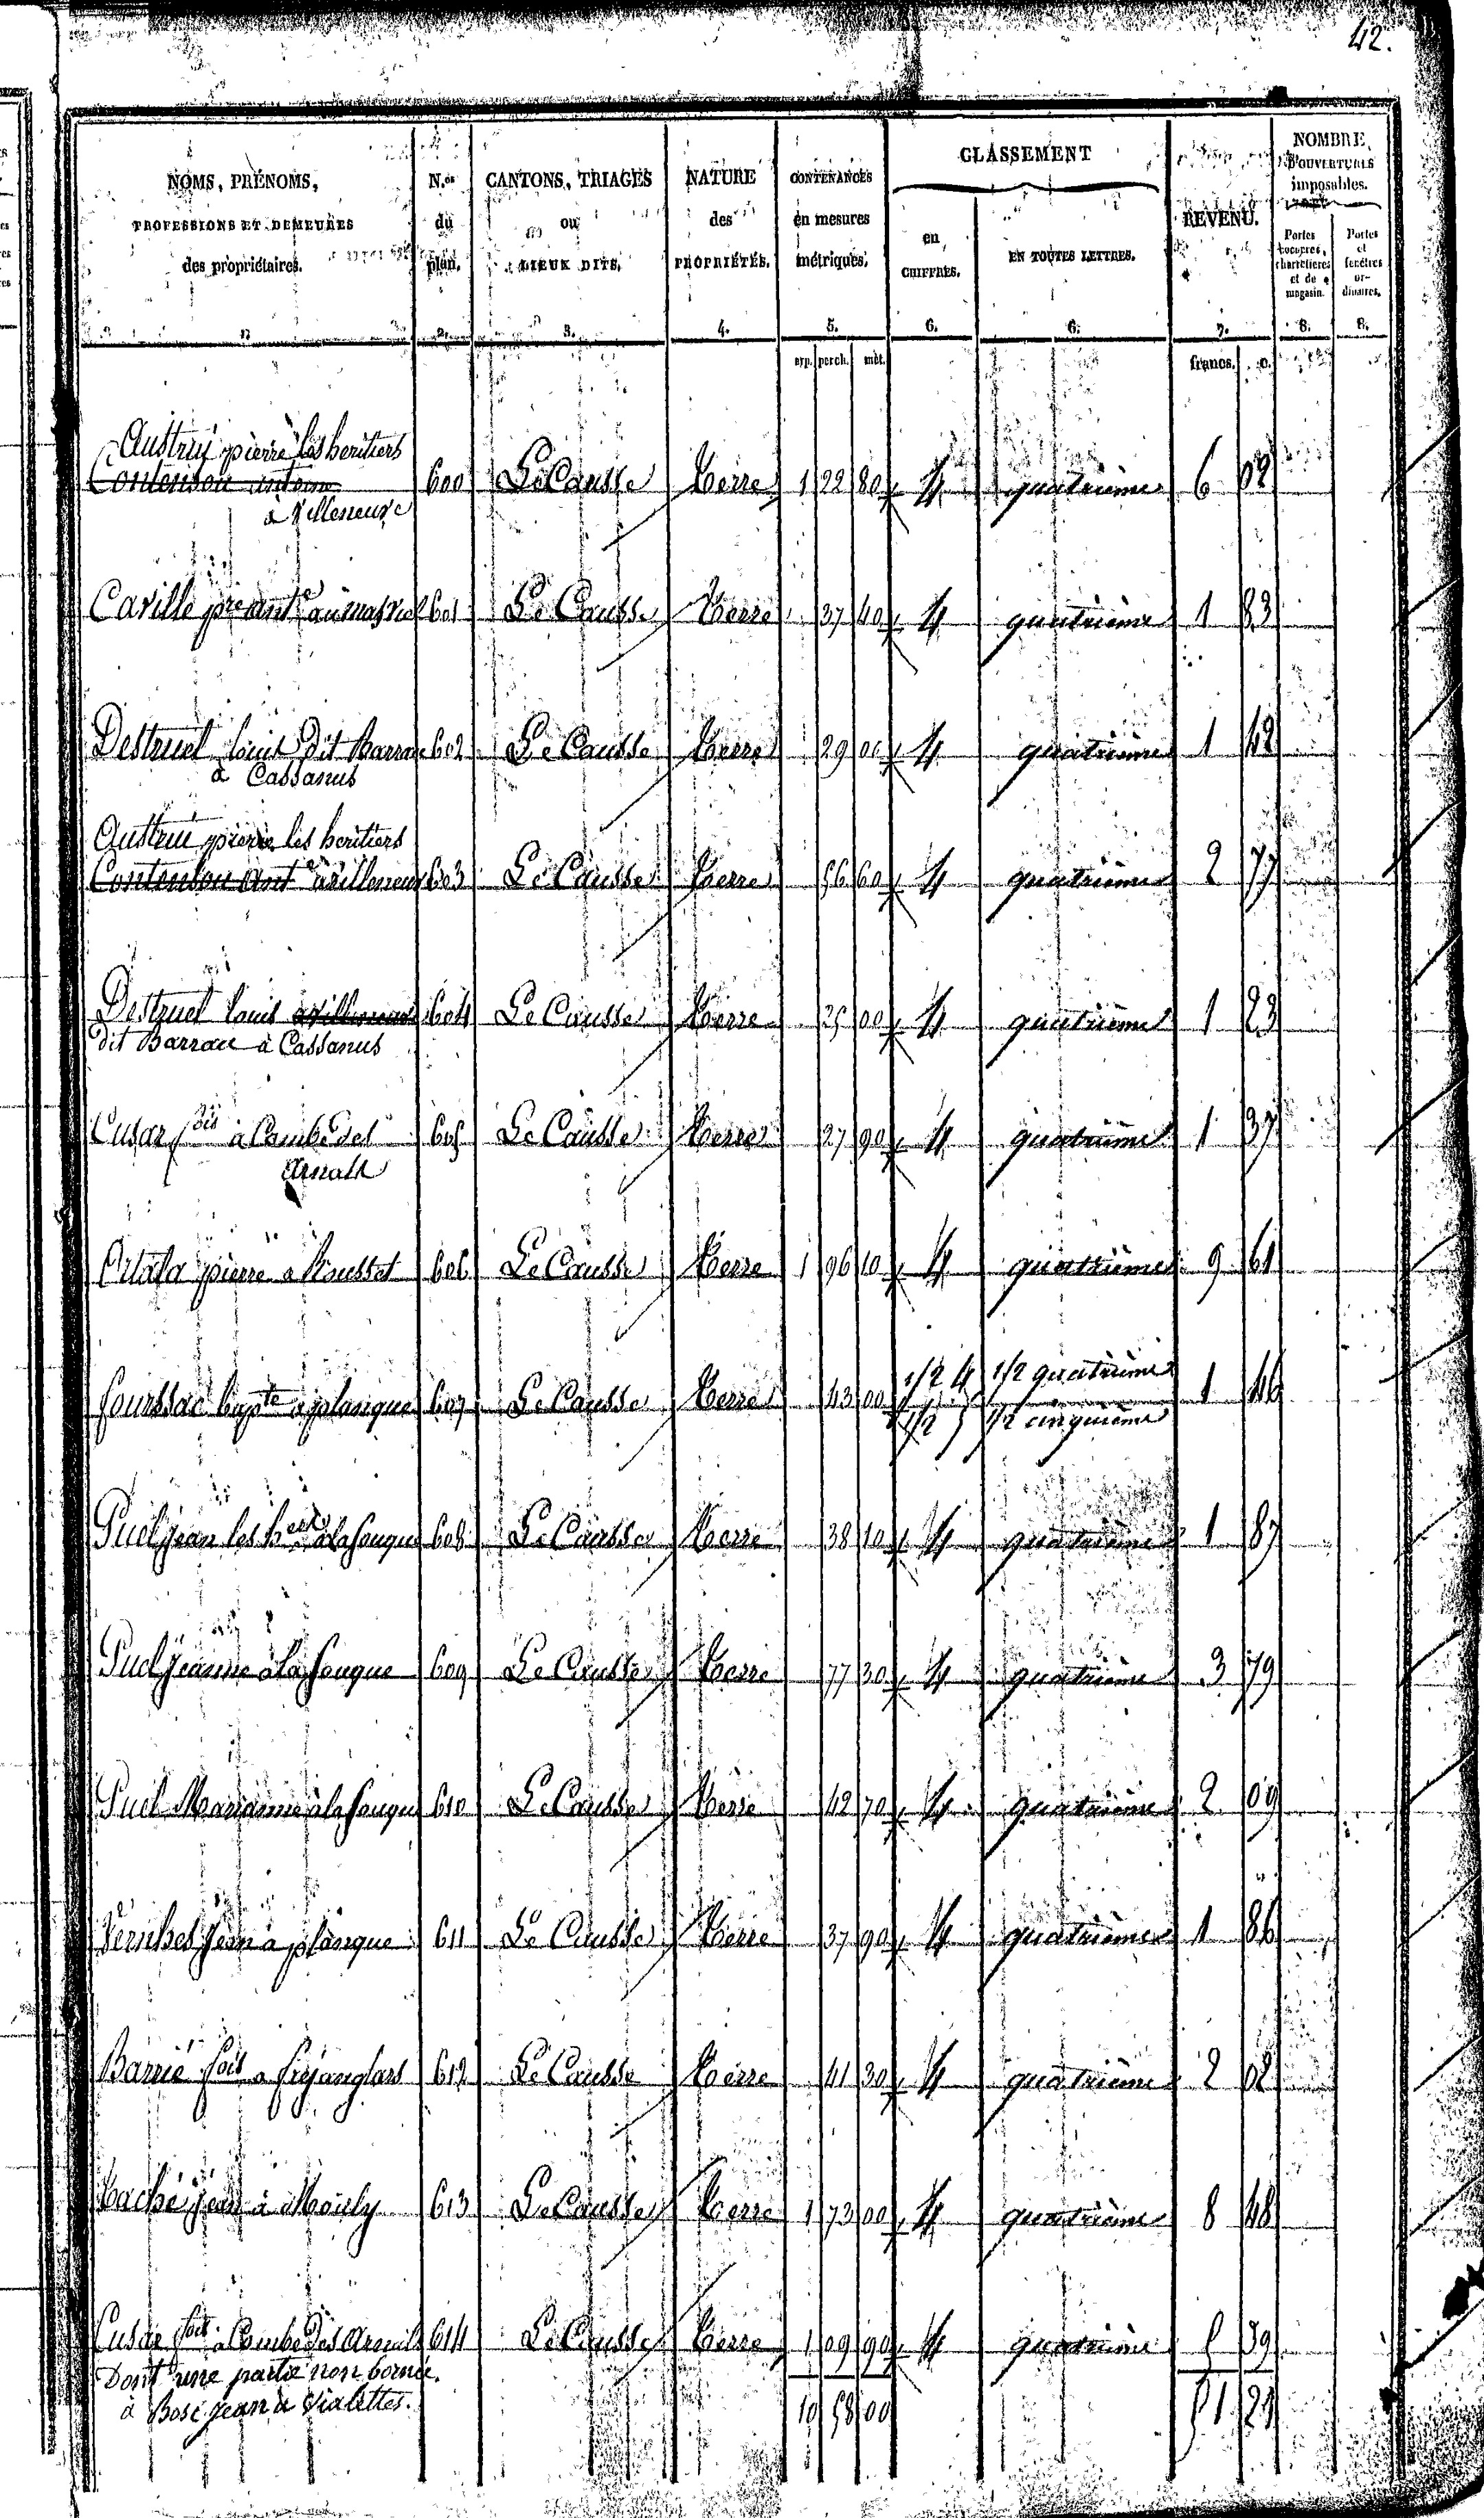 42.
NOMS, PRÉNOMS, PROFESSIONS ET DEMEURES des propriétaires.
N.os du plan.
CANTONS, TRIAGES ou LIEUX DITS.
NATURE des PROPRIÉTÉS.
CONTENANCES en mesures métriques.
CLASSEMENT
en CHIFFRES.
EN TOUTES LETTRES.
REVENU.
NOMBRE D'OUVERTURES imposables.
Portes cochères, charretières et de magasin.
Portes et fenêtres or-dinaires.
1. 2. 3. 4. 5. 6. 6. 7. 8. 8.
arp. perch. mèt. francs. c.
Austruy pierre les heritiers
Contensou antoine 600 Le Causse terre 1 22 80 4 quatrième 6 02
à Villeneuve
Caville pre ant.e au mas viel 601 Le Causse terre 37 40 4 quatrième 1 83
Destruel louis dit Barrau 602 Le Causse terre 29 00 4 quatrième 1 42
à Cassanus
Austrui pierre les heritiers
Contensou ant.e à villeneuve 603 Le Causse terre 56 60 4 quatrième 2 77
Destruel louis à villeneuve 604 Le Causse terre 25 00 4 quatrième 1 23
dit Barrau à Cassanus
Cusar fois à Combe des 605 Le Causse terre 27 90 4 quatrième 1 37
Arnals
Ortala pierre a Rousset 606 Le Causse terre 1 96 10 4 quatrième 9 61
1/2 4 1/2 quatrième
fourssac bapte a planque 607 Le Causse terre 43 00 1 46
1/2 5 1/2 cinquième
Puel jean les hers à la fouque 608 Le Causse terre 38 10 4 quatrième 1 87
Puel jeanne à la fouque 609 Le Causse terre 77 30 4 quatrième 3 79
Puel Marianne à la fouque 610 Le Causse terre 42 70 4 quatrième 2 09
jean a planque 611 Le Causse terre 37 90 4 quatrième 1 86
Barrié fois a frejanglars 612 Le Causse terre 41 30 4 quatrième 2 02
jean à Mouly 613 Le Causse terre 1 73 00 4 quatrième 8 48
Cusar fois a Combe des Arnals 614 Le Causse terre 1 09 90 4 quatrième 5 39
Dont une partie non bornée.
à Bosc jean à Vialettes.
10 58 00 51 21